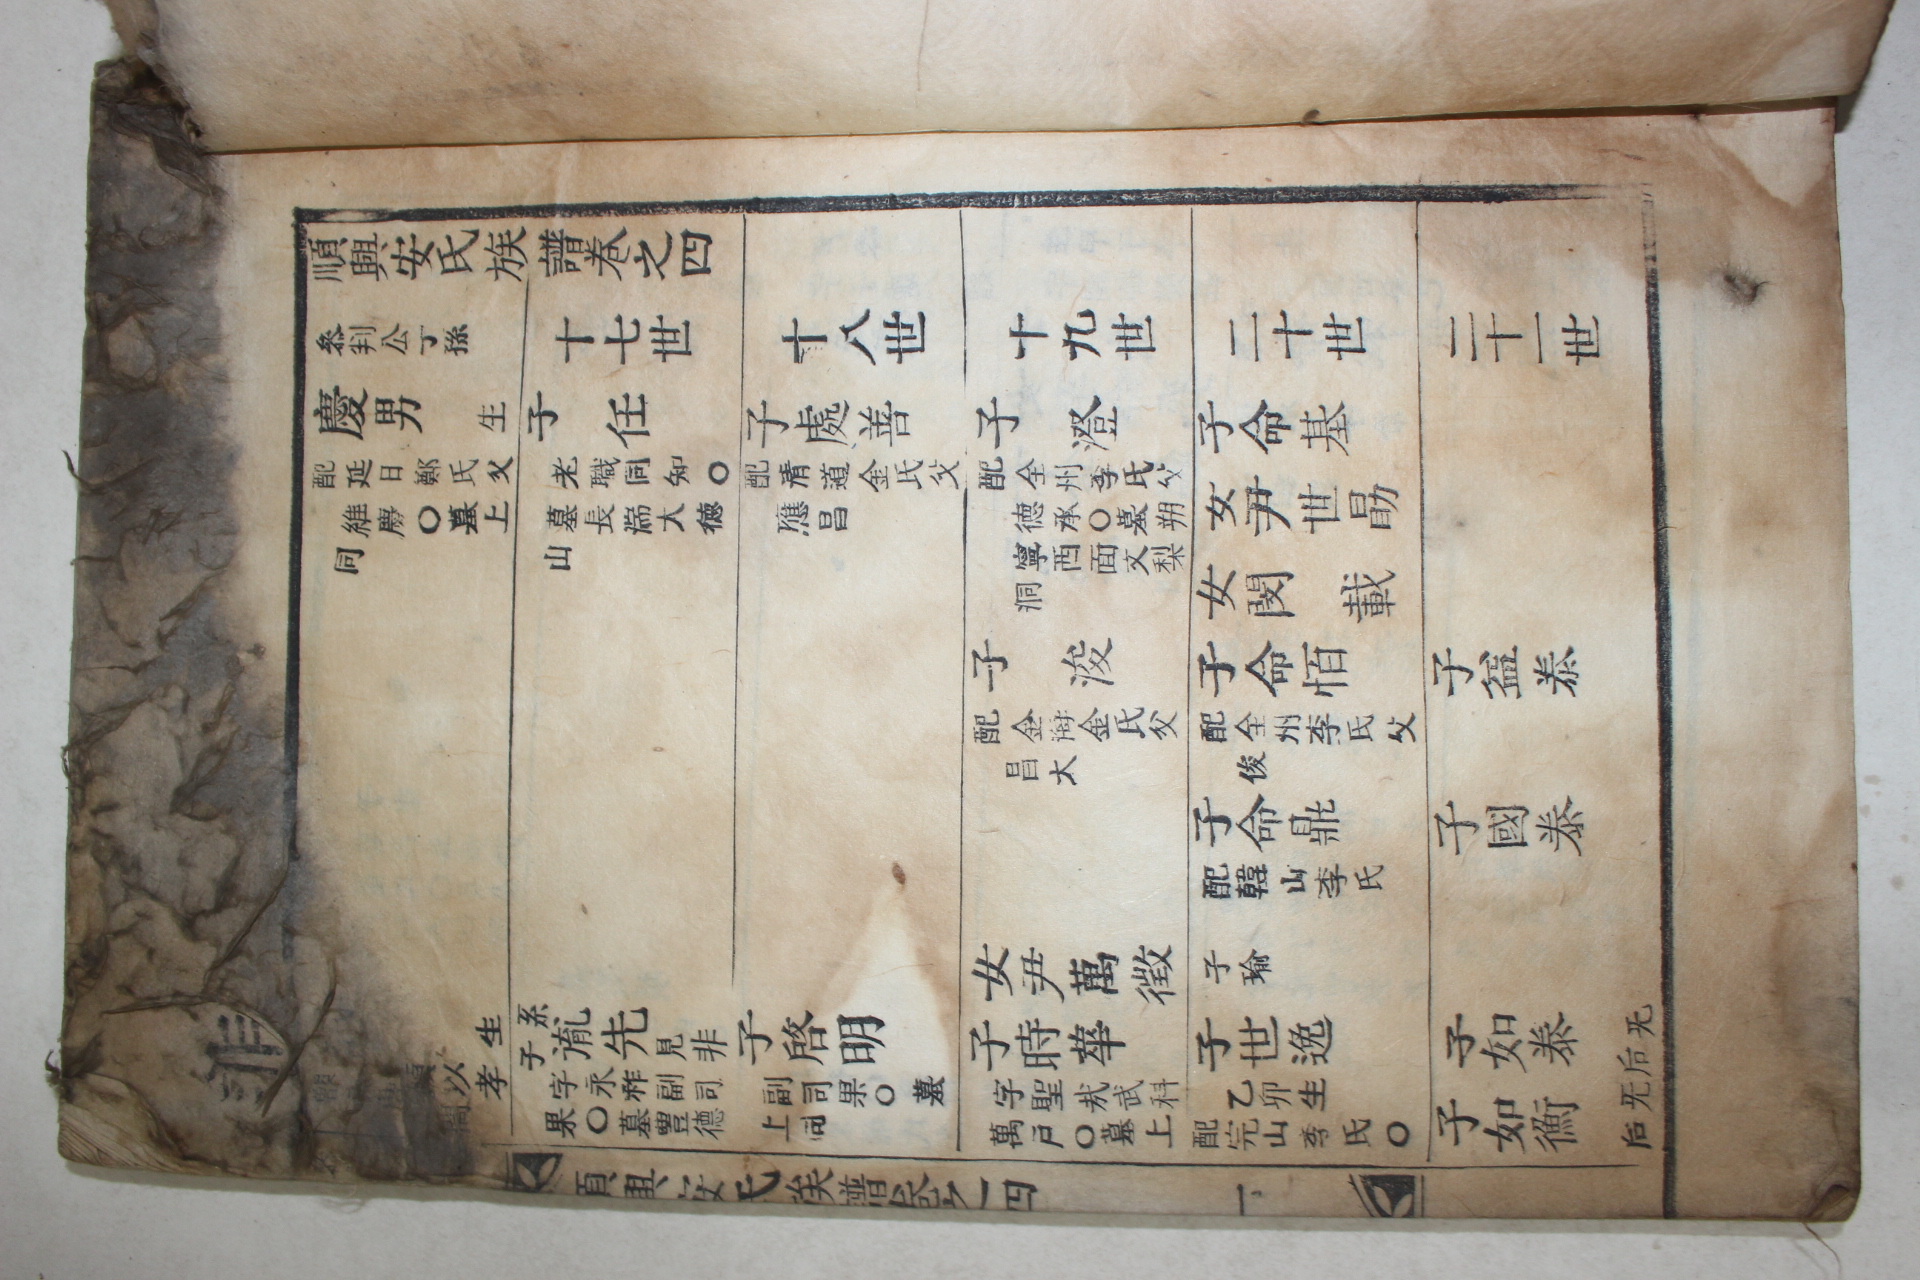 順興安氏族譜卷之四
參判公丁孫
十七世
十八世
十九世
二十世
二十一世
慶男
生
配延日鄭氏父
維慶〇墓上
同
子任
老職同知〇
墓長湍大德
山
子處善
配淸道金氏父
應昌
子澄
配全州李氏父
德承〇墓朔
寧西面文梨
洞
子命基
女尹世勗
女閔載
子浚
配金海金氏父
昌大
子命恒
配全州李氏父
俊
子益泰
子命鼎
配韓山李氏
子國泰
女尹萬徵
子瑜
生
以孝
系子胤先見非
字永祚副司
果〇墓豊德
子啓明
副司果〇墓
上同
子時華
字聖哉武科
萬戶〇墓上
子世逸
乙卯生
配完山李氏〇
子如泰
无后
子如衡
无后
順興安氏族譜卷之四
一